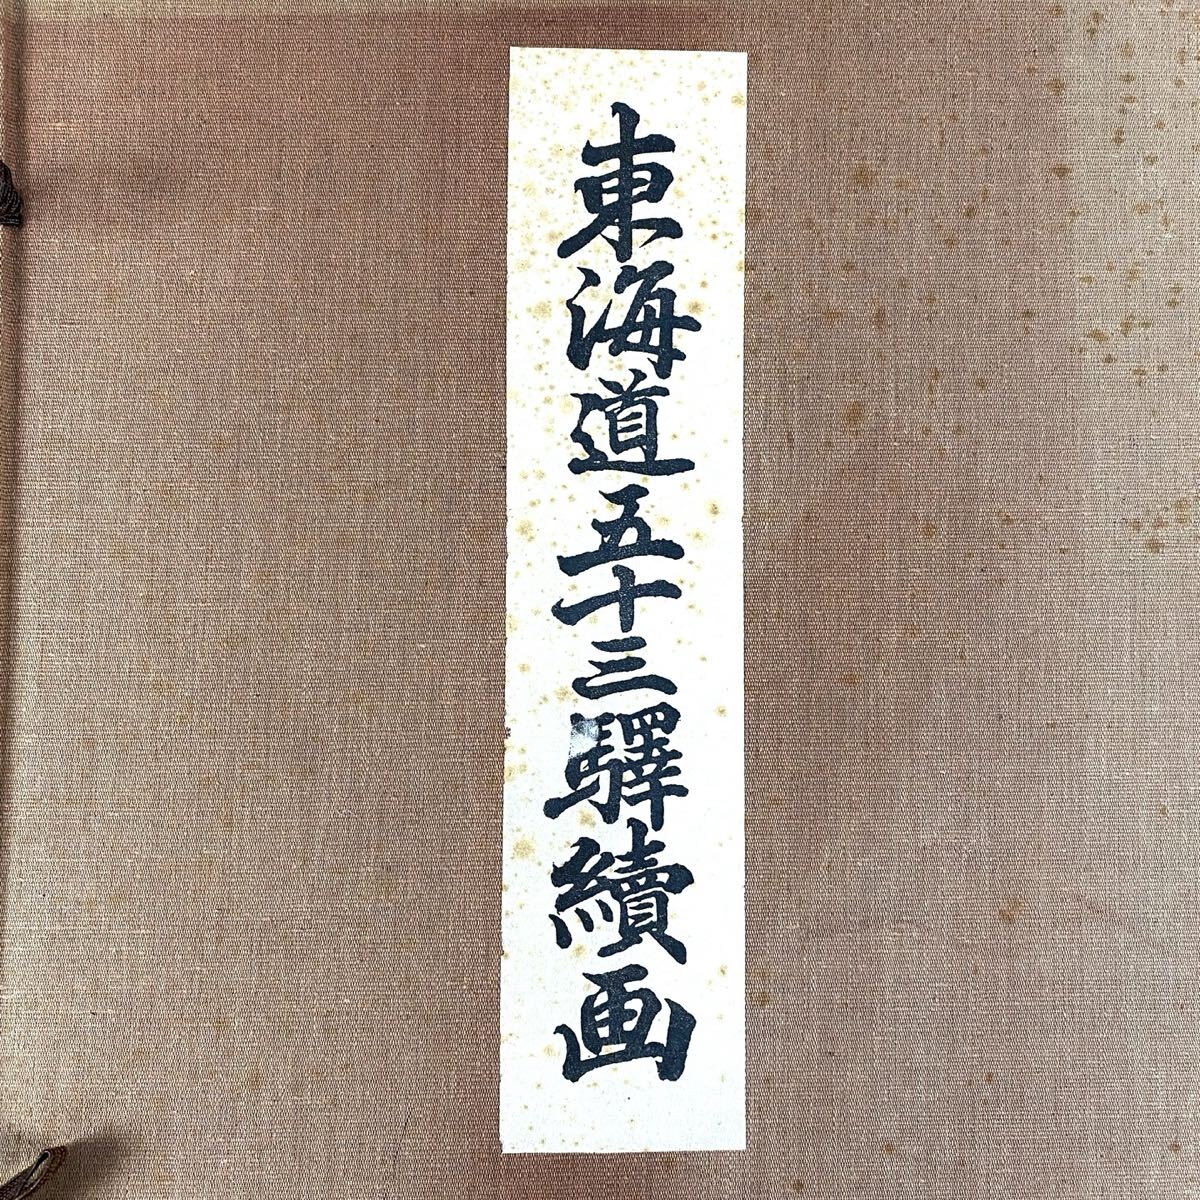 東海道五十三驛續画